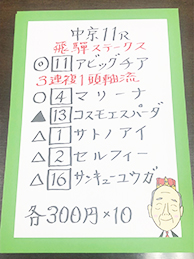 中京11R
飛騨ステークス
◎11アビッグチア
3連複1頭軸流
○4マリーナ
▲13コスモエスパーダ
△1サトノアイ
△2セルフィー
△16サンキューユウガ
各300円×10